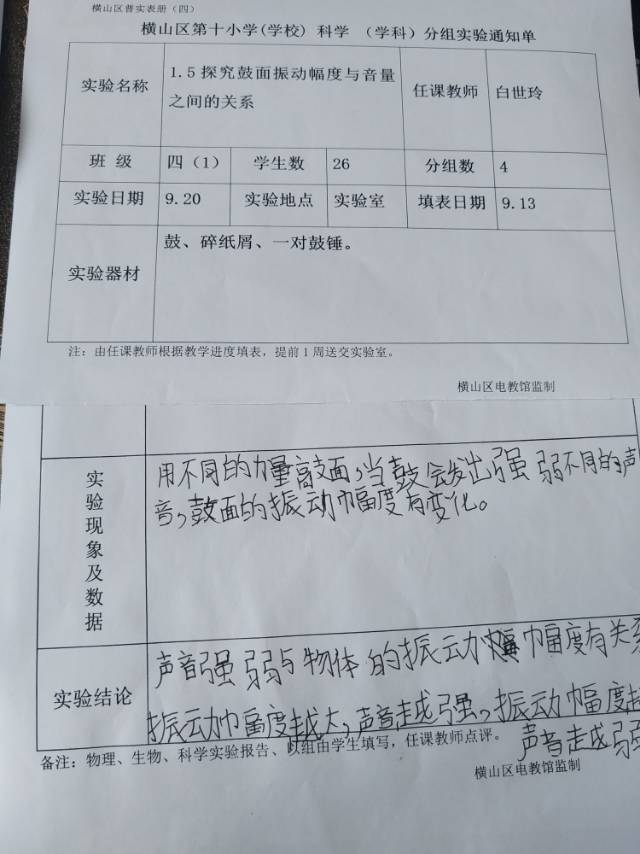 横山区普实表册（四）
横山区第十小学(学校) 科学 （学科）分组实验通知单
实验名称 1.5 探究鼓面振动幅度与音量之间的关系 任课教师 白世玲
班 级 四（1） 学生数 26 分组数 4
实验日期 9.20 实验地点 实验室 填表日期 9.13
实验器材 鼓、碎纸屑、一对鼓锤。
注：由任课教师根据教学进度填表，提前 1 周送交实验室。
横山区电教馆监制
实验现象及数据
用不同的力量敲鼓面,当鼓会发出强弱不同的声
音,鼓面的振动幅度有变化。
实验结论
声音强弱与物体的振动幅度有关系
振动幅度越大,声音越强,振动幅度越
声音越弱
备注：物理、生物、科学实验报告、以组由学生填写，任课教师点评。
横山区电教馆监制